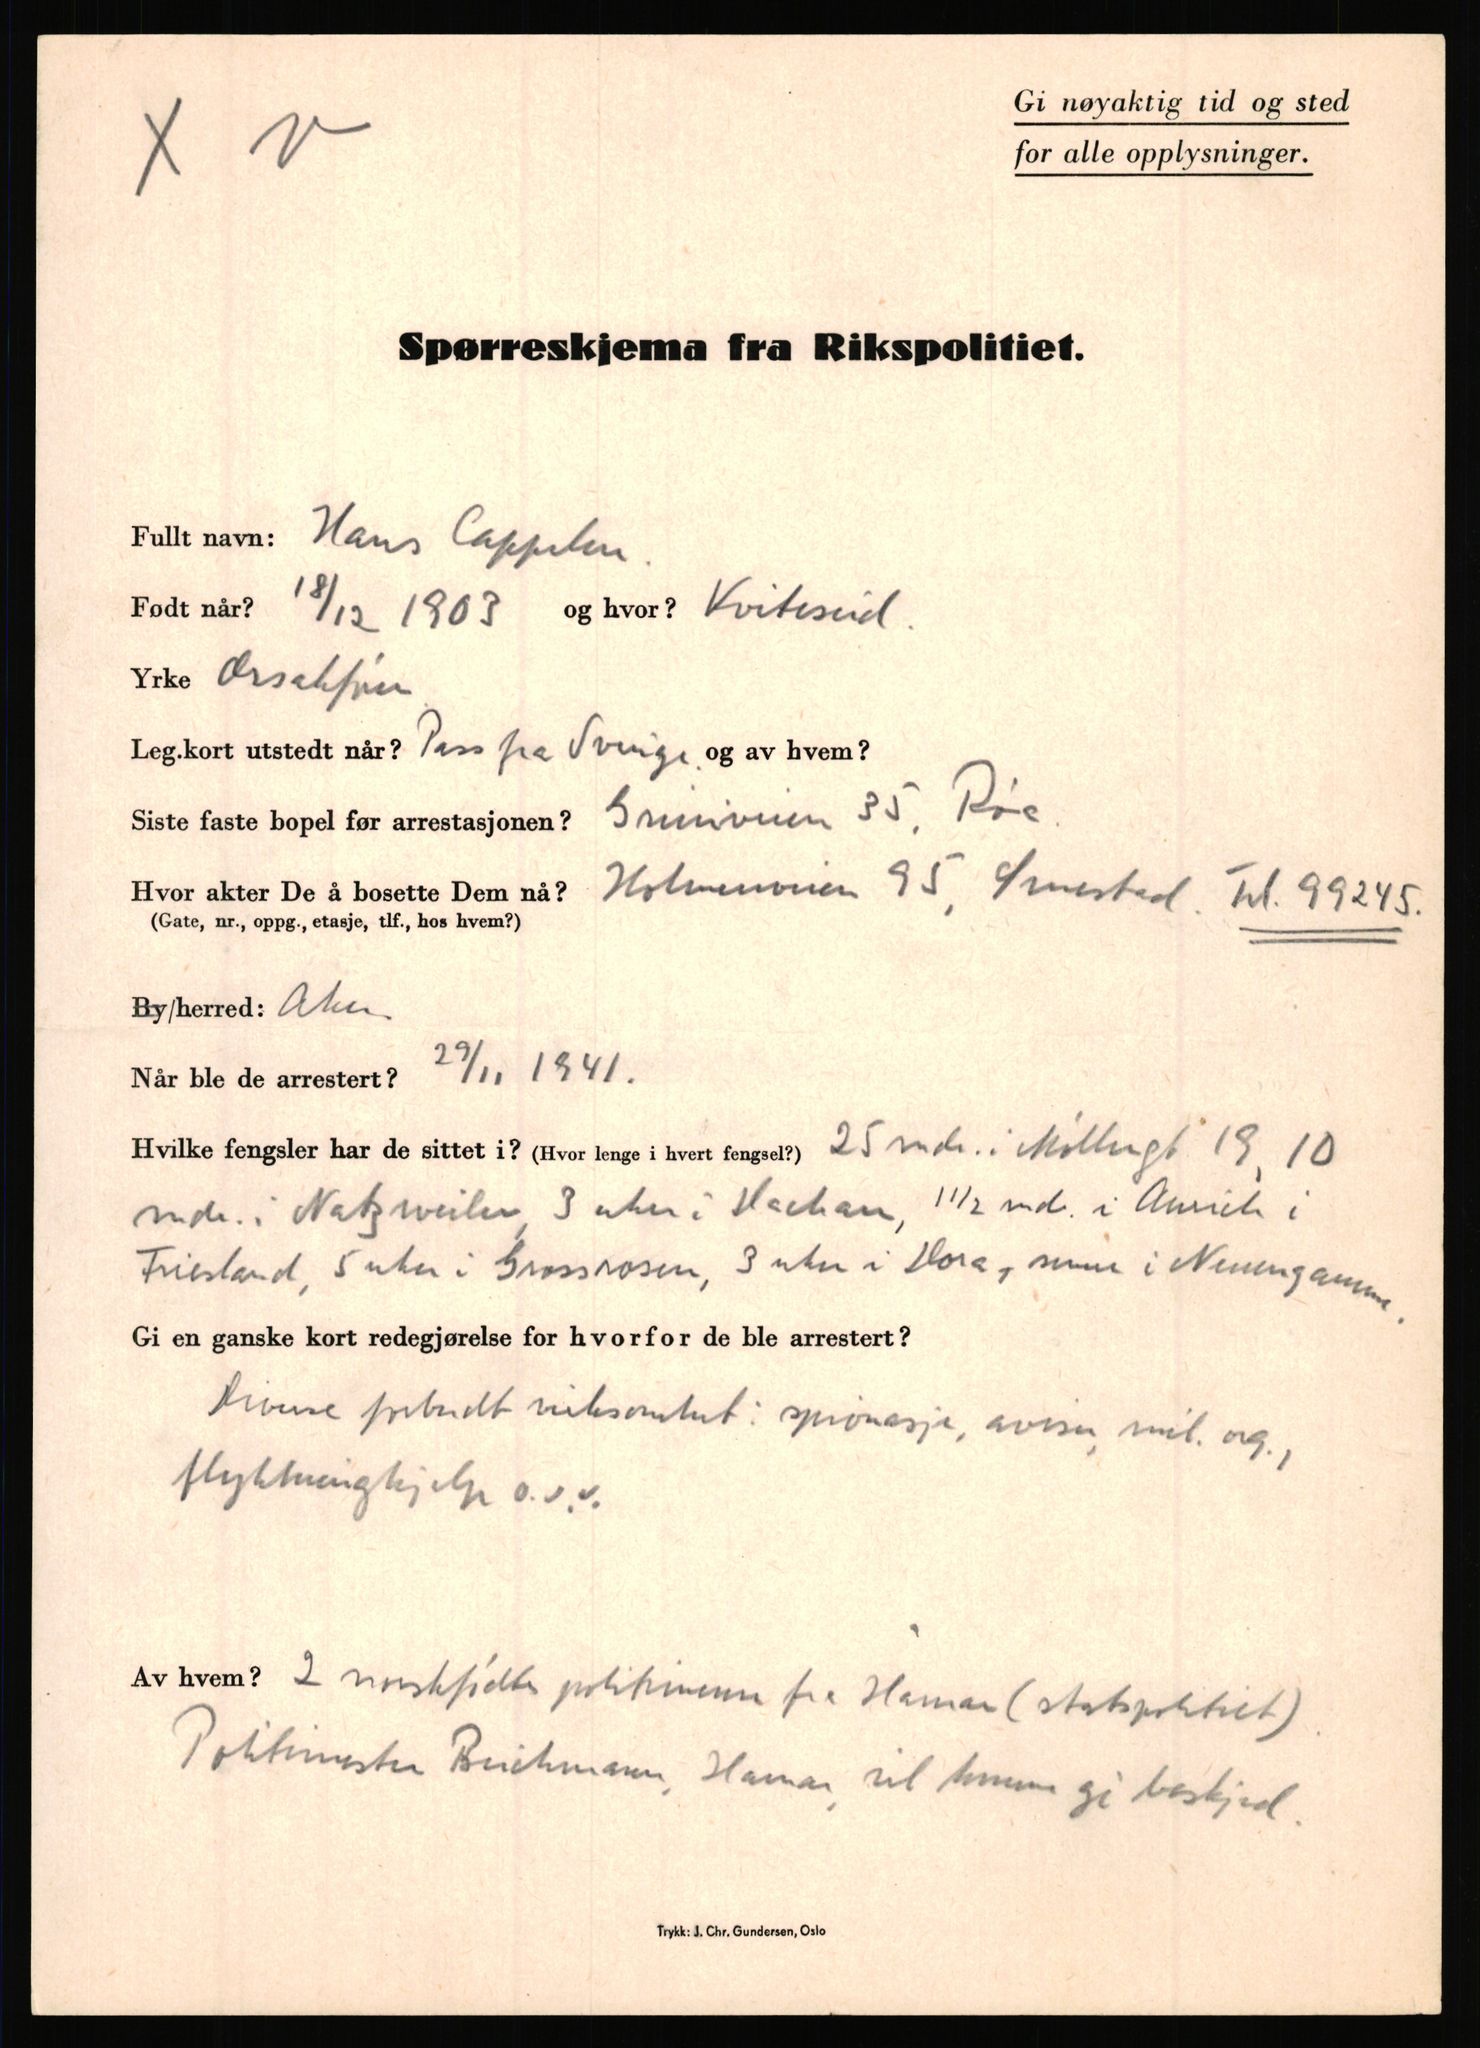 X V
Gi nøyaktig tid og sted
for alle opplysninger.
Spørreskjema fra Rikspolitiet.
Fullt navn: Hans Cappelen.
Født når? 18/12 1903 og hvor? Kviteseid.
Yrke Orsakfører
Leg.kort utstedt når? Pass fra Sverige. og av hvem?
Siste faste bopel før arrestasjonen? Griniveien 35, Røa.
Hvor akter De å bosette Dem nå? Holmenveien 95, Smestad. Tel. 99245.
(Gate, nr., oppg., etasje, tlf., hos hvem?)
By/herred: Aker
Når ble de arrestert? 29/11 1941.
Hvilke fengsler har de sittet i? (Hvor lenge i hvert fengsel?) 25 mdr. i Møllergt 19, 10
mdr. i Natzweiler, 3 uker i Dachau, 1 1/2 mdr. i Aurich i
Friesland, 5 uker i Grossrosen, 3 uker i Dora, senere i Neuengamme.
Gi en ganske kort redegjørelse for hvorfor de ble arrestert?
Diverse forbudt virksomhet: spionasje, aviser, mil. org.,
flyktninghjelp o.s.v.
Av hvem? 2 norskfødte politimenn fra Hamar (statspolitiet).
Politimester Beichmann, Hamar, vil kunne gi beskjed.
Trykk: J. Chr. Gundersen, Oslo